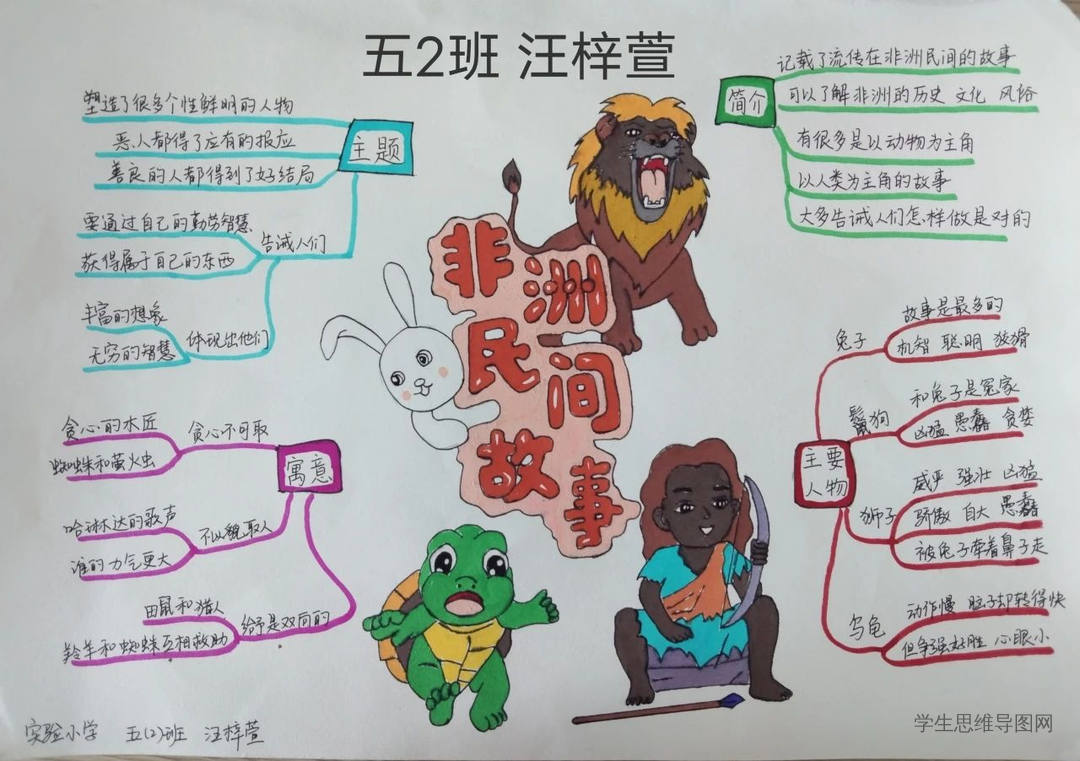 五2班 汪梓萱
非洲民间故事
主题
塑造了很多个性鲜明的人物
恶人都得了应有的报应
善良的人都得到了好结局
告诫人们
要通过自己的勤劳智慧
获得属于自己的东西
体现出他们
丰富的想象
无穷的智慧
简介
记载了流传在非洲民间的故事
可以了解非洲的历史 文化 风俗
有很多是以动物为主角
以人类为主角的故事
大多告诫人们怎样做是对的
寓意
贪心不可取
贪心的木匠
蜘蛛和萤火虫
不以貌取人
哈琳达的歌声
谁的力气更大
给予是双向的
田鼠和猎人
羚羊和蜘蛛互相救助
主要
人物
兔子
故事是最多的
机智 聪明 狡猾
鬣狗
和兔子是冤家
凶猛 愚蠢 贪婪
狮子
威严 强壮 凶猛
骄傲 自大 愚蠢
被兔子牵着鼻子走
乌龟
动作慢 脑子却转得快
但争强好胜 心眼小
实验小学 五(2)班 汪梓萱
学生思维导图网